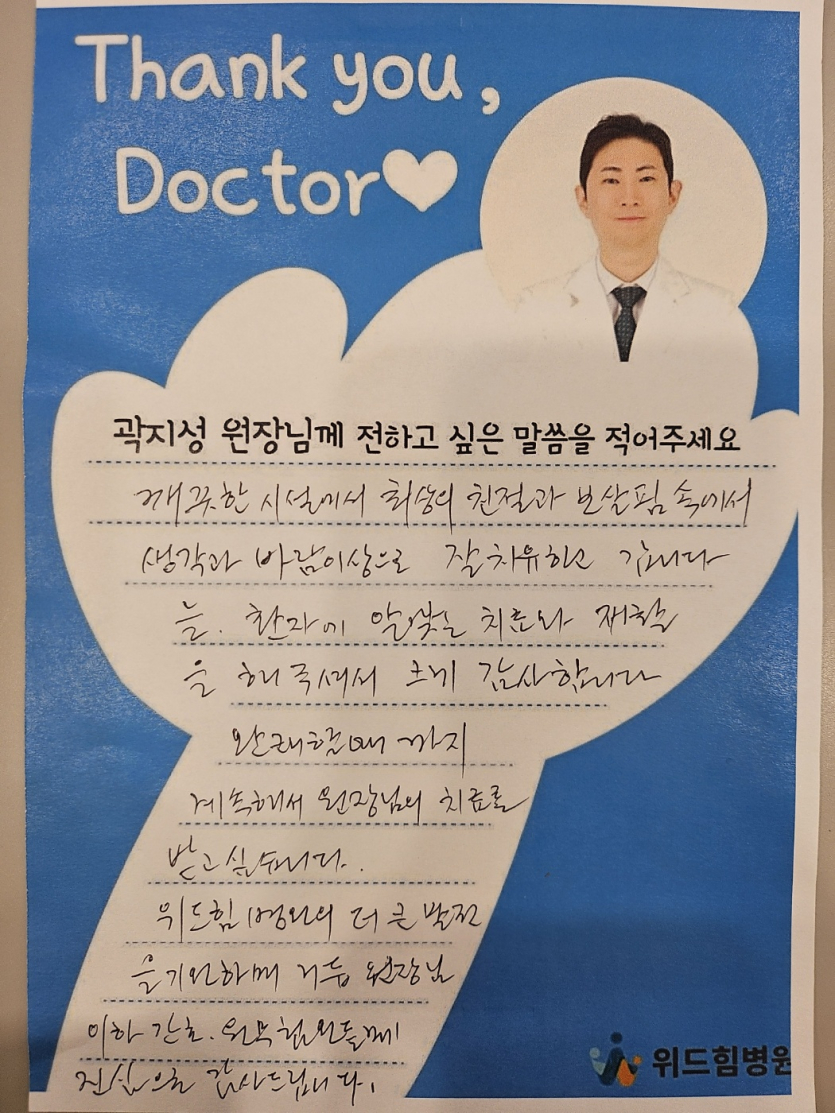 Thank you,
Doctor
곽지성 원장님께 전하고 싶은 말씀을 적어주세요
깨끗한 시설에서 최상의 친절과 보살핌 속에서
생각과 바람이상으로 잘 치유하고 갑니다
늘. 환자에 알맞는 치료와 재활
을 해 주셔서 크게 감사합니다
완쾌할때 까지
계속해서 원장님의 치료를
받고 싶습니다.
위드힘 병원의 더 큰 발전
을 기원하며 거듭 원장님
이하 간호. 원무 팀원들께
진심으로 감사드립니다.
위드힘병원